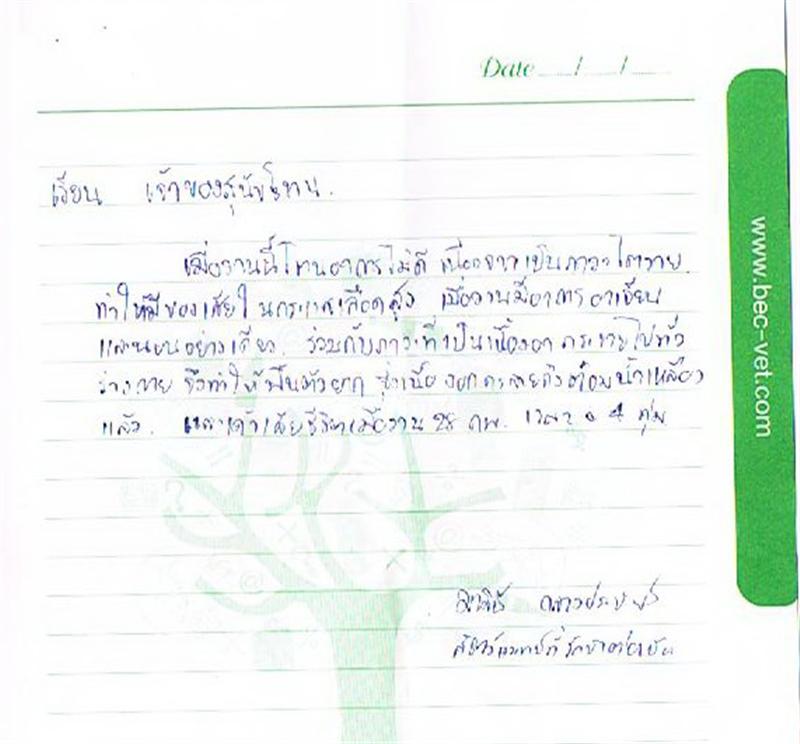 Date / /
เรียน เจ้าของสุนัขโทน.
เมื่อวานนี้โทนอาการไม่ดี เนื่องจากเป็นภาวะไตวาย
ทำให้มีของเสียในกระแสเลือดสูง เมื่อวานมีอาการอาเจียน
และนอนอย่างเดียว. ร่วมกับภาวะที่เป็นเนื้องอก กระจายไปทั่ว
ร่างกาย จึงทำให้ฟื้นตัวยาก ซึ่งเนื้องอกกระจายถึงต่อมน้ำเหลือง
แล้ว. และเค้าเสียชีวิตเมื่อวาน 28 กพ. เวลา 4 ทุ่ม
www.bec-vet.com